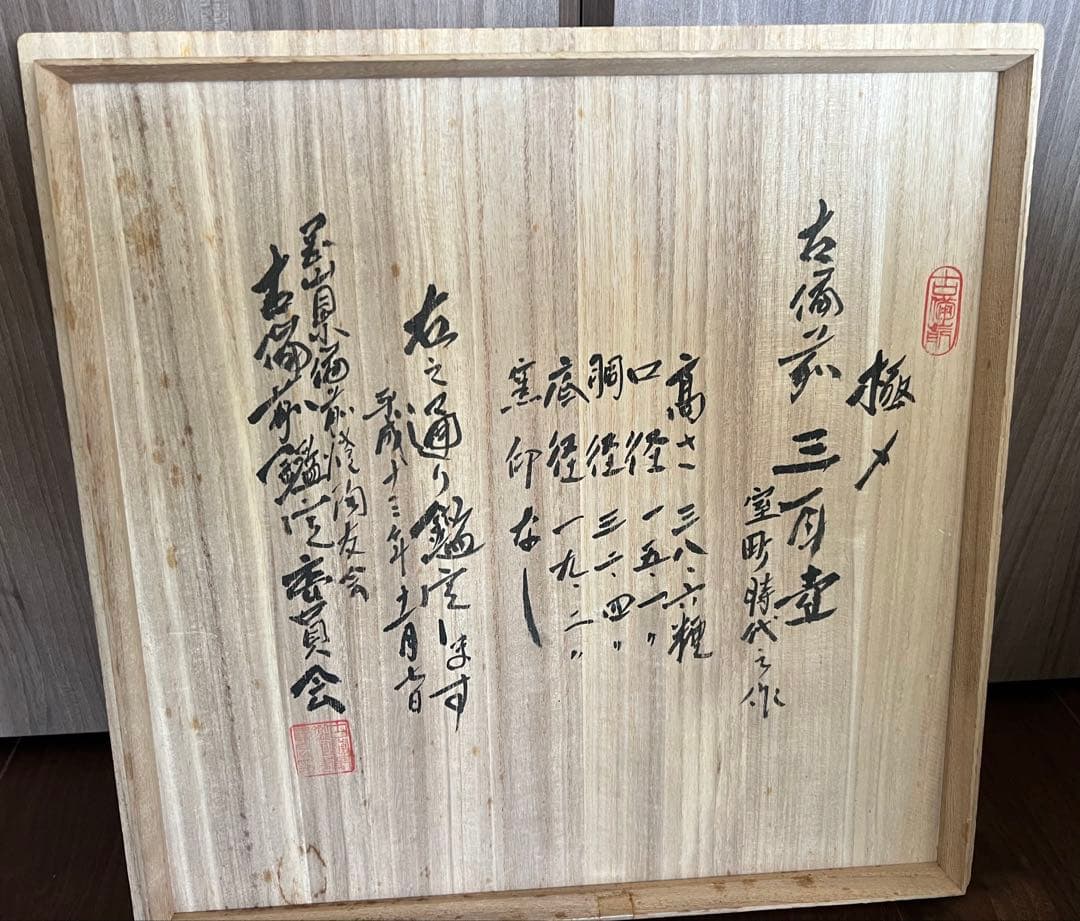 古備前
極メ
古備前 三耳壺
室町時代之作
高さ 三八・六糎
口径 一五・一〃
胴径 三二・四〃
底径 一九・二〃
窯印なし
右之通り鑑定します
平成十三年十一月七日
岡山県備前焼陶友会
古備前鑑定委員会